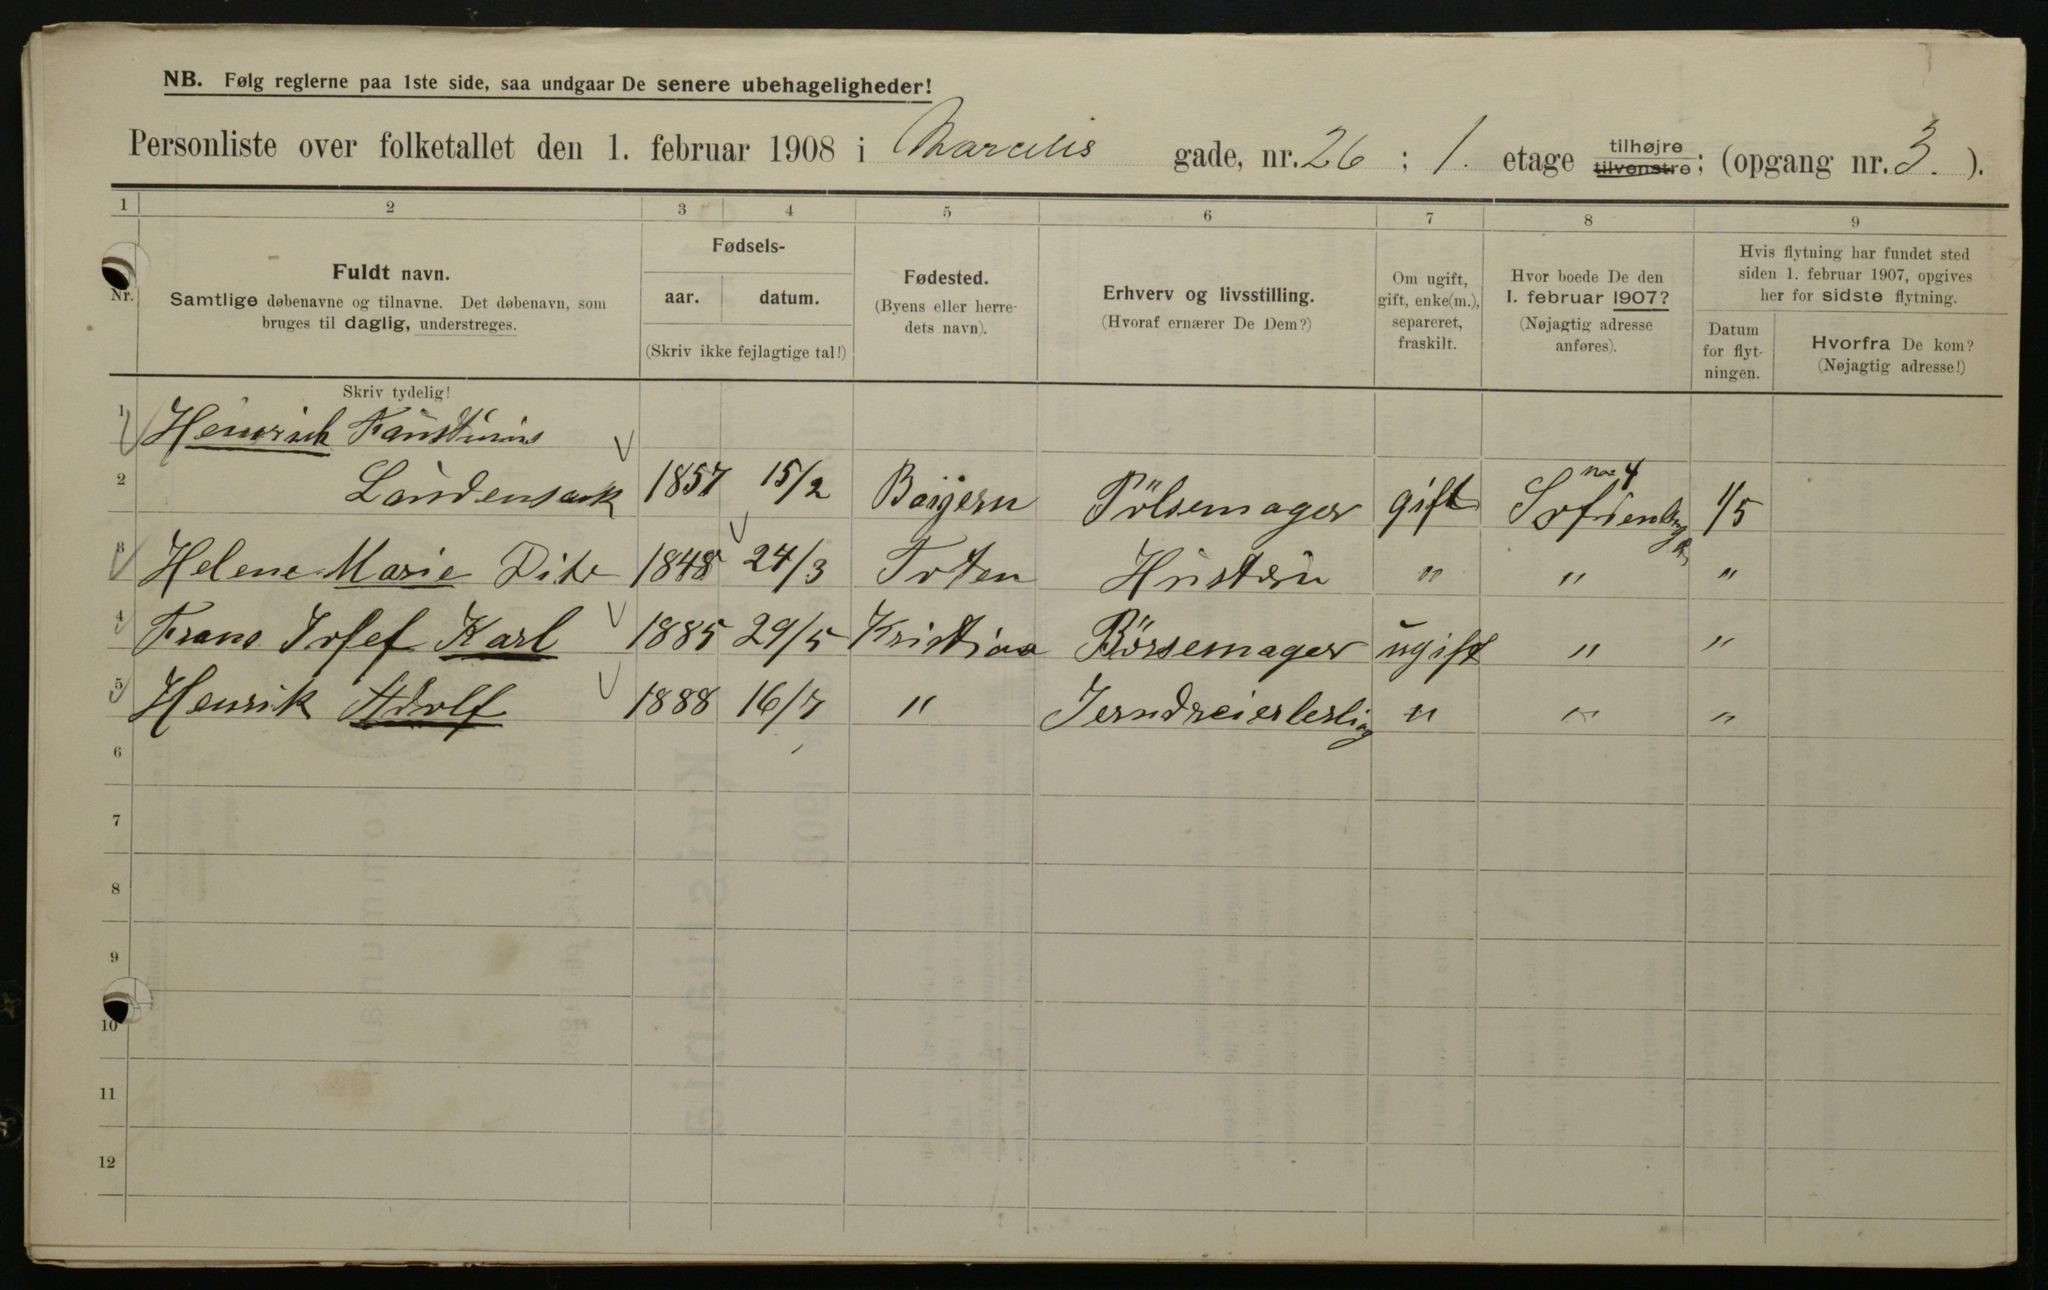 NB. Følg reglerne paa 1ste side, saa undgaar De senere ubehageligheder!
Personliste over folketallet den 1. februar 1908 i Marcelis gade, nr. 26 ; 1. etage tilhøjre tilvenstre; (opgang nr. 3. ).
1 2 3 4 5 6 7 8 9
Nr.
Fuldt navn.
Samtlige døbenavne og tilnavne. Det døbenavn, som
bruges til daglig, understreges.
Skriv tydelig!
Fødsels-
aar. datum.
(Skriv ikke fejlagtige tal!)
Fødested.
(Byens eller herre-
dets navn).
Erhverv og livsstilling.
(Hvoraf ernærer De Dem?)
Om ugift,
gift, enke(m.),
separeret,
fraskilt.
Hvor boede De den
1. februar 1907?
(Nøjagtig adresse
anføres).
Hvis flytning har fundet sted
siden 1. februar 1907, opgives
her for sidste flytning.
Datum
for flyt-
ningen.
Hvorfra De kom?
(Nøjagtig adresse!)
1 Heinrich Faustinus
2 Laudensack 1857 15/2 Baijern Pölsemager gift No 4 Sofienberg 1/5
3 Helene Marie Dite 1848 24/3 Toten Hustru " " "
4 Frans Josef Karl 1885 29/5 Kristina Börsemager ugift " "
5 Henrik Adolf 1888 16/7 " Jerndreierlerling " " "
6
7
8
9
10
11
12